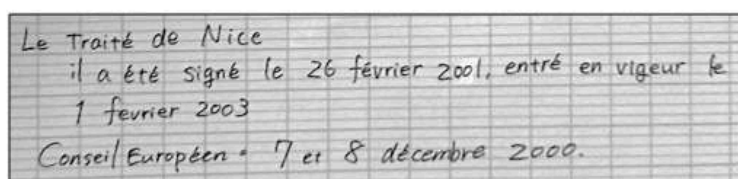 Le Traité de Nice
il a été signé le 26 février 2001, entré en vigeur le
1 fevrier 2003
Conseil Européen • 7 et 8 décembre 2000.